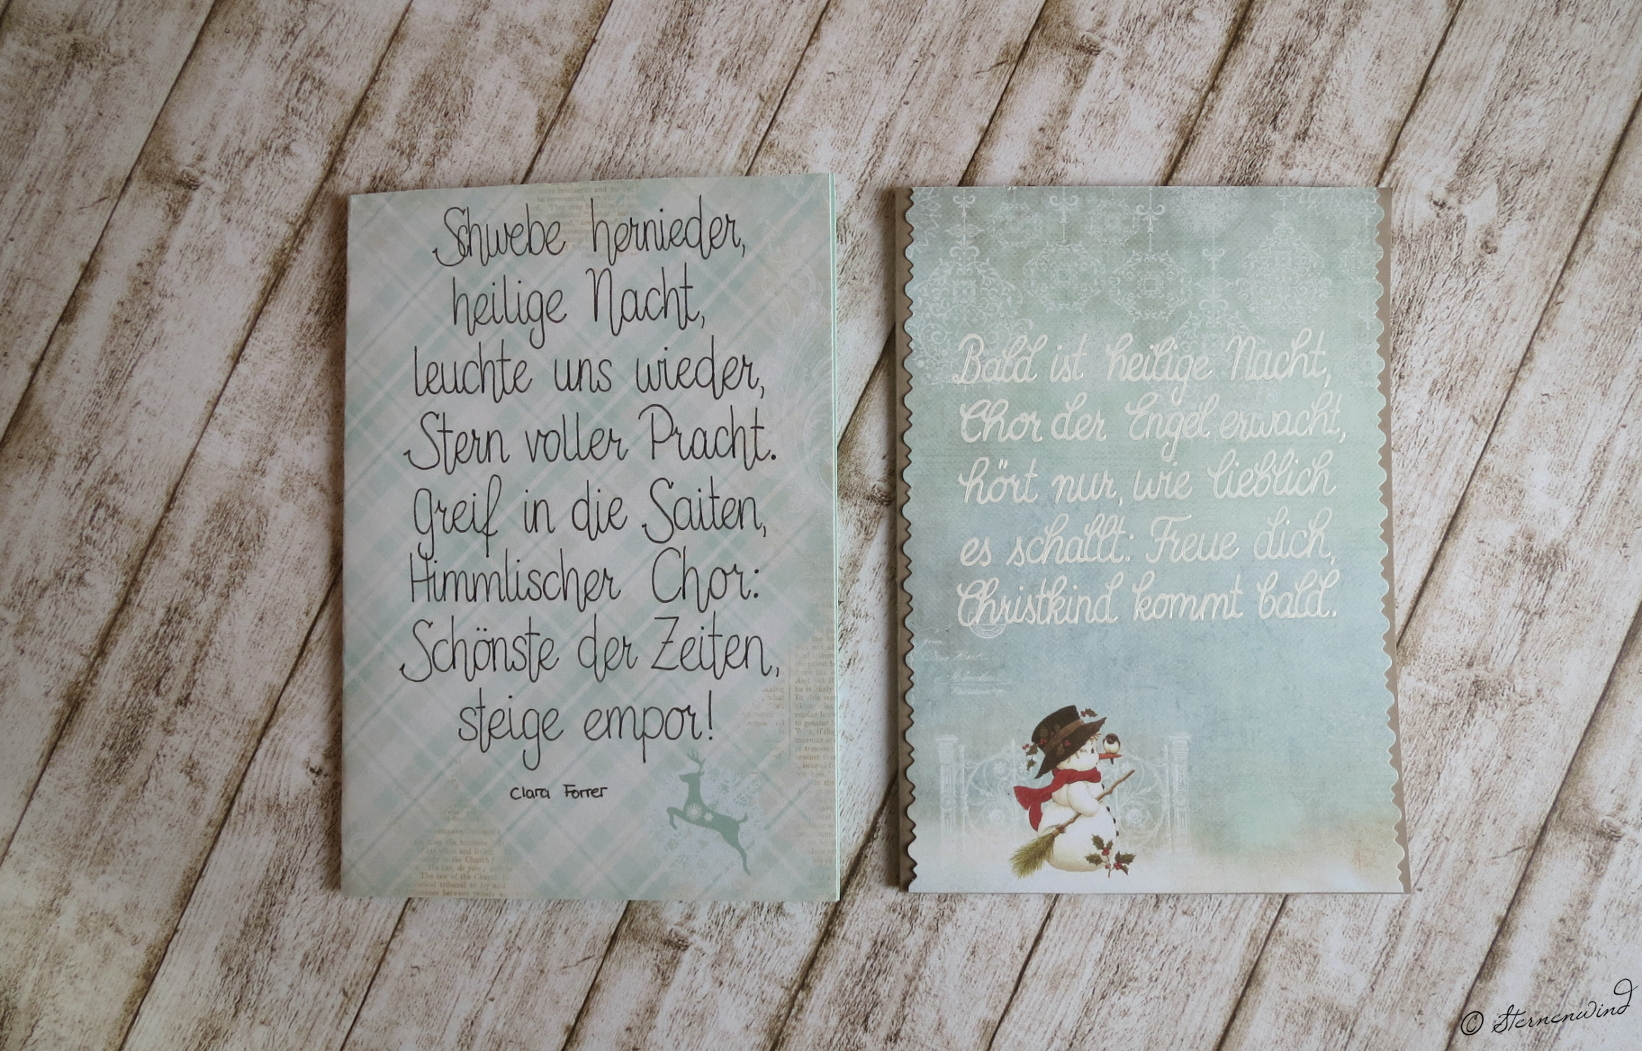 Schwebe hernieder,
heilige Nacht,
leuchte uns wieder,
Stern voller Pracht.
Greif in die Saiten,
Himmlischer Chor:
Schönste der Zeiten,
steige empor!
Clara Forrer
Bald ist heilige Nacht,
Chor der Engel erwacht,
hört nur, wie lieblich
es schallt: Freue dich,
Christkind kommt bald.
© Sternenwind